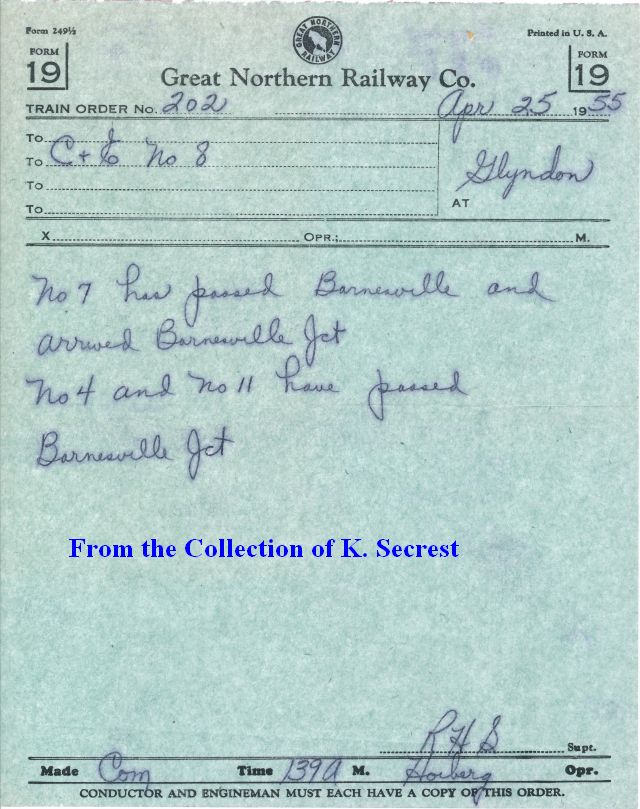 Form 249½
Printed in U. S. A.
FORM
19
GREAT NORTHERN RAILWAY
FORM
19
Great Northern Railway Co.
TRAIN ORDER No. 202
Apr 25 1955
To
To C + E No 8
To
To
Glyndon
AT
X OPR.; M.
No 7 has passed Barnesville and
arrived Barnesville Jct
No 4 and No 11 have passed
Barnesville Jct
From the Collection of K. Secrest
R H S Supt.
Made Com Time 139 A M. Hoiberg Opr.
CONDUCTOR AND ENGINEMAN MUST EACH HAVE A COPY OF THIS ORDER.